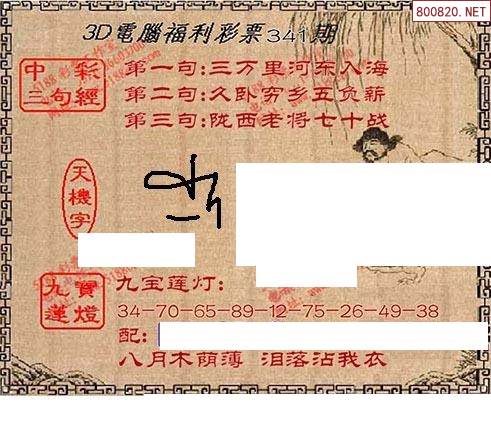 800820.NET
3D電腦福利彩票341期
中彩三句經
第一句:三万里河东入海
第二句:久卧穷乡五负薪
第三句:陇西老将七十战
天機字
九寶蓮燈
九宝莲灯:
34-70-65-89-12-75-26-49-38
配:
八月木荫薄 泪落沾我衣